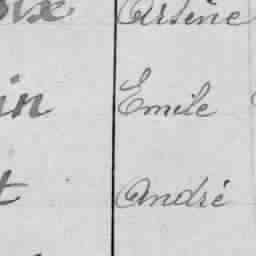 oix Arsène
in Emile
t André